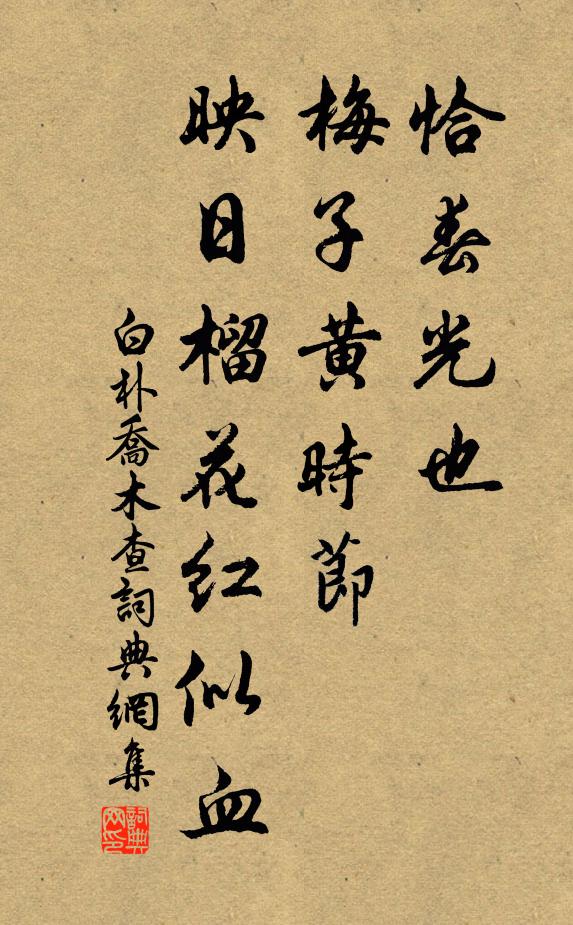 恰春光也
梅子黄時節
映日榴花红似血
白朴喬木查詞典網集
詞典网印